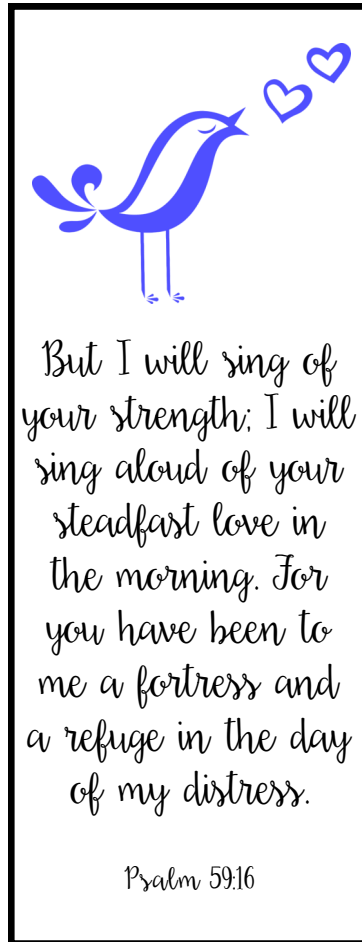 But I will sing of
your strength; I will
sing aloud of your
steadfast love in
the morning. For
you have been to
me a fortress and
a refuge in the day
of my distress.
Psalm 59:16